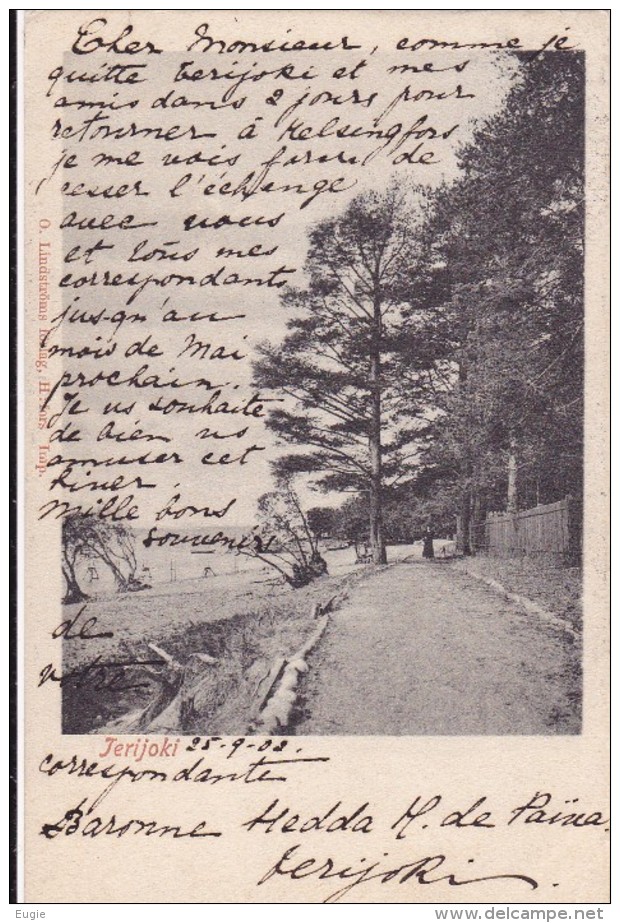 Cher Monsieur, comme je
quitte Terijoki et mes
amis dans 2 jours pour
retourner à Helsingfors
je me vois de
cesser l'échange
avec vous
et tous mes
correspondants
jusqu'au
mois de Mai
prochain.
Je vs souhaite
de bien vs
amuser cet
hiver.
Mille bons
souvenirs
de
votre
Terijoki 25-9-02.
correspondante
Baronne Hedda M. de
Terijoki.
O. Lindströms H:fors, Imp.
Eugie
www.delcampe.net